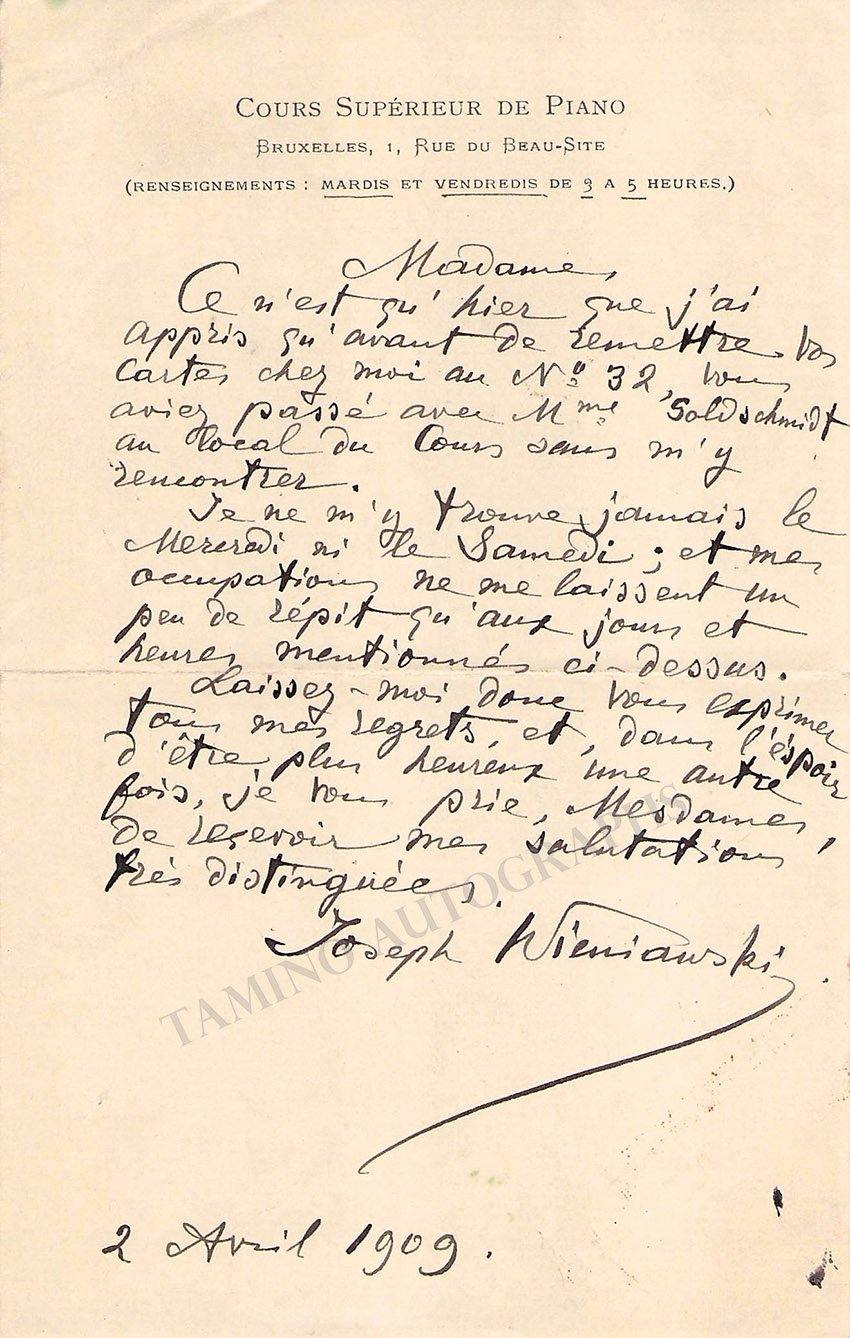 COURS SUPÉRIEUR DE PIANO
BRUXELLES, 1, RUE DU BEAU-SITE
(RENSEIGNEMENTS : MARDIS ET VENDREDIS DE 3 A 5 HEURES.)
Madame,
Ce n'est qu'hier que j'ai
appris qu'avant de remettre vos
cartes chez moi au Nº 32, vous
aviez passé avec Mme Goldschmidt
au local du Cours sans m'y
rencontrer.
Je ne m'y trouve jamais le
Mercredi ni le Samedi ; et mes
occupations ne me laissent un
peu de répit qu'aux jours et
heures mentionnés ci-dessus.
Laissez-moi donc vous exprimer
tous mes regrets, et, dans l'éspoir
d'être plus heureux une autre
fois, je vous prie, Mesdames,
de reçevoir mes salutations
très distinguées.
Joseph Wieniawski
TAMINO AUTOGRAPHS
2 Avril 1909.